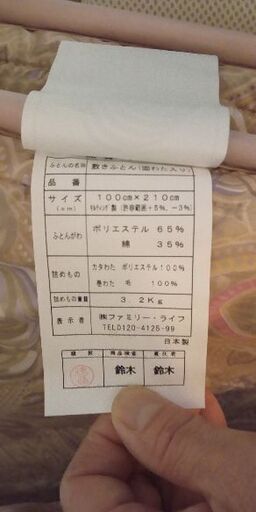 ふとんの名称 敷きふとん(固わた入り)
品番
サイズ 100cm×210cm
(cm) キルティング製 (許容範囲+5%、-3%)
ふとんがわ ポリエステル 65%
綿 35%
詰めもの カタわた ポリエステル100%
巻わた 毛 100%
詰めもの重量 3.2Kg
表示者 ㈱ファミリー・ライフ
TEL0120-4126-99
日本製
縫製 商品検査 責任者
鈴木 鈴木